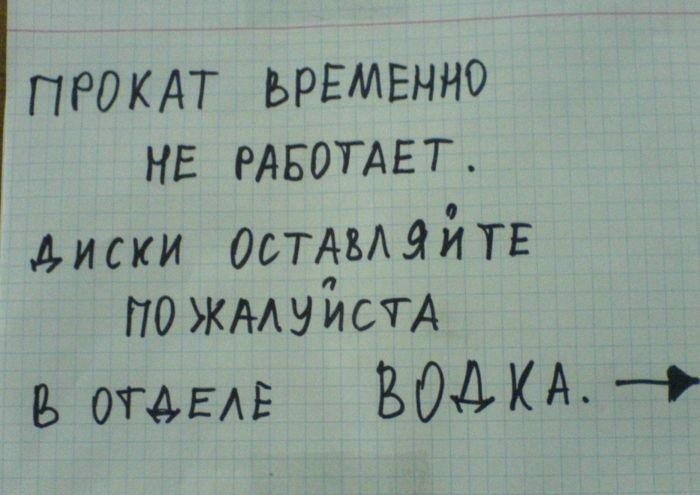 ПРОКАТ ВРЕМЕННО
НЕ РАБОТАЕТ.
ДИСКИ ОСТАВЛЯЙТЕ
ПОЖАЛУЙСТА
В ОТДЕЛЕ ВОДКА. →